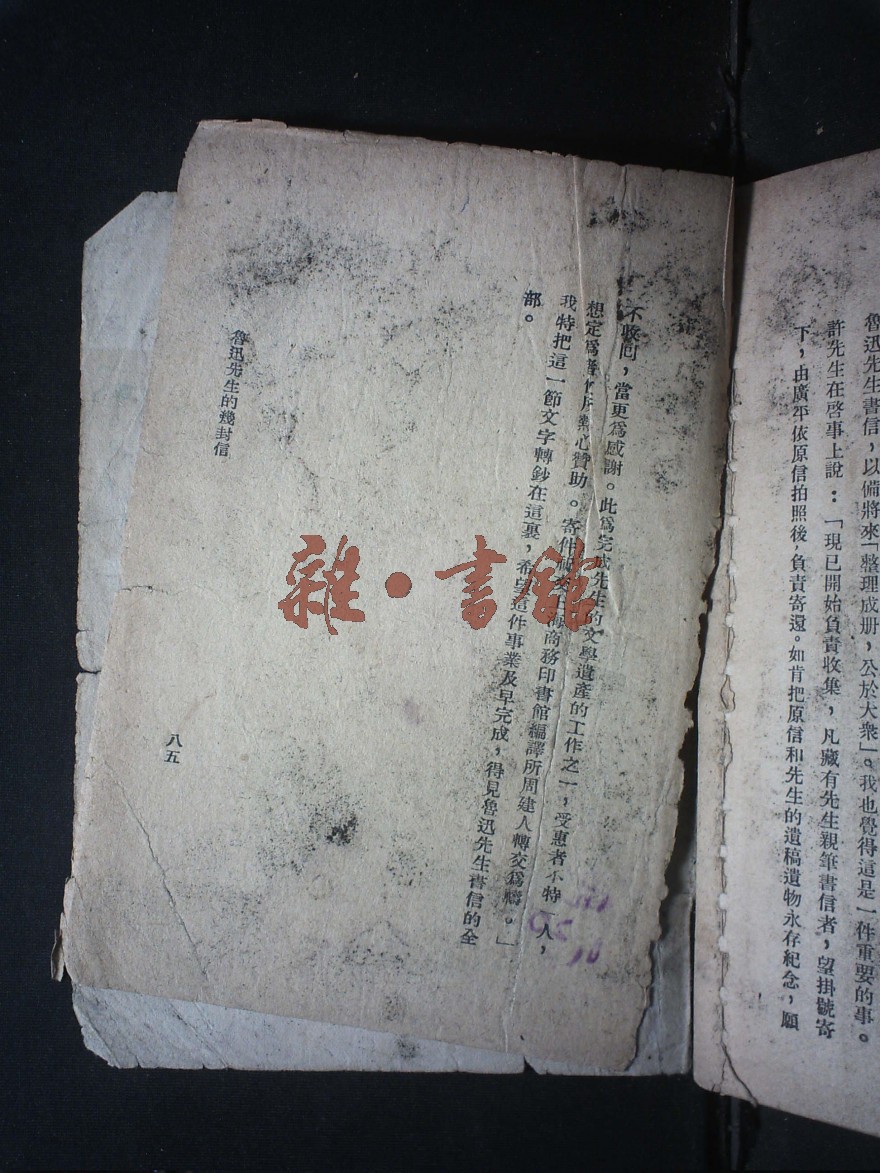 魯迅先生書信，以備將來「整理成册，公於大衆」。我也覺得這是一件重要的事。
許先生在啓事上說：「現已開始負責收集，凡藏有先生親筆書信者，望掛號寄
下，由廣平依原信拍照後，負責寄還。如肯把原信和先生的遺稿遺物永存紀念，願
不收回，當更爲感謝。此爲完成先生的文學遺產的工作之一，受惠者不特一人，
想定爲熱心贊助。寄件商務印書館編譯所周建人轉交爲禱。」
我特把這一節文字轉鈔在這裏，希望這件事業及早完成，得見魯迅先生書信的全
部。
魯迅先生的幾封信
八五
雜·書館